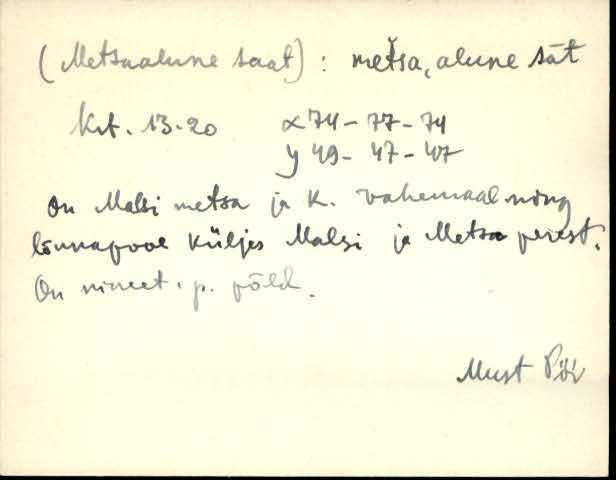 (Metsaalune saat) : metša, alune sāt
Krt. 13-20 x 74 - 77 - 74
y 49 - 47 - 47
On Malsi metsa ja K. vahemaal ning
lõunapool küljes Malsi ja Metsa perest.
On nimet. p. põld.
Must Pöi